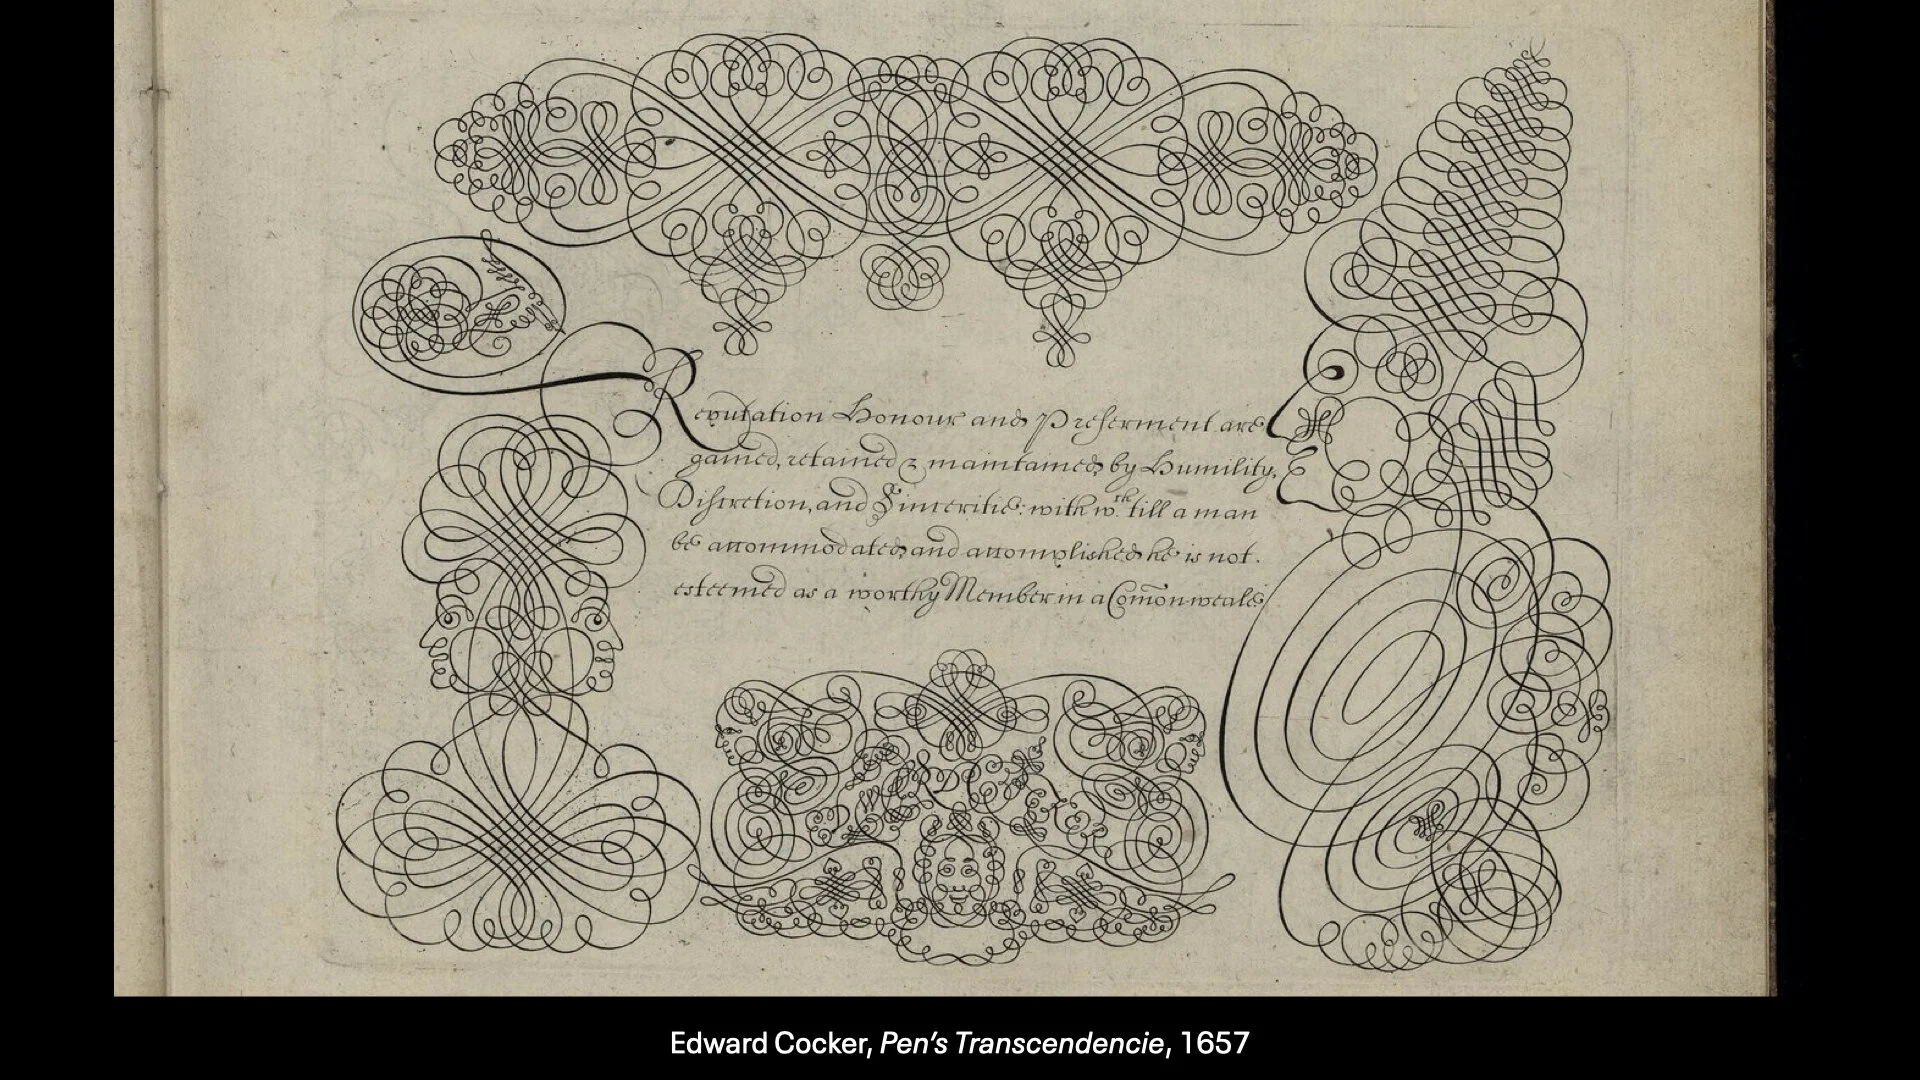 Reputation Honour and Preferment are
gained, retained & maintained by Humility,
Discretion, and Sinceritie: with w.ch till a man
be accommodated and accomplished he is not.
esteemed as a worthy Member in a Com̄onweale
Edward Cocker, Pen’s Transcendencie, 1657